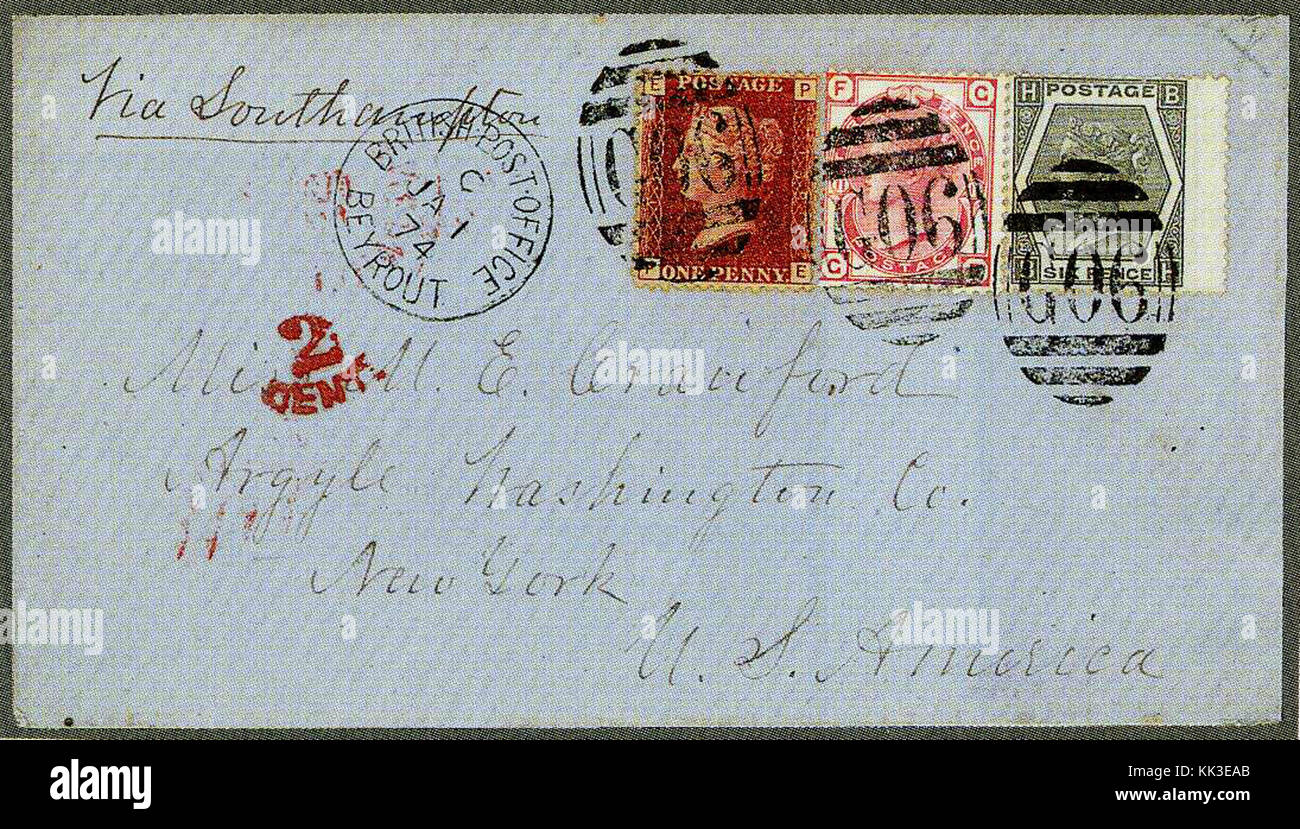 Via Southampton
BRITISH·POST·OFFICE
C
JA 1
74
BEYROUT
E POSTAGE P
P ONE PENNY E
F PENCE G
G POSTAGE F
H POSTAGE B
SIX PENCE H
G06
G06
G06
2
CENTS
Miss M E. Crawford
Argyle Washington Co.
New York
U. S. America
alamy
alamy
Image ID: KK3EAB
www.alamy.com